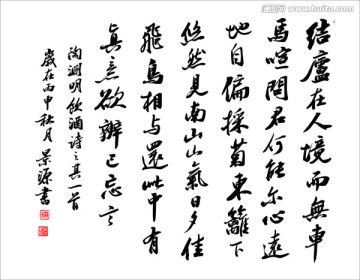 结廬在人境而無車
馬喧問君何能尔心遠
地自偏採菊東籬下
悠然見南山山氣日夕佳
飛鳥相与還此中有
真意欲辨已忘言
陶淵明飲酒詩之其一首
歲在丙申秋月景源書
www.huitu.com